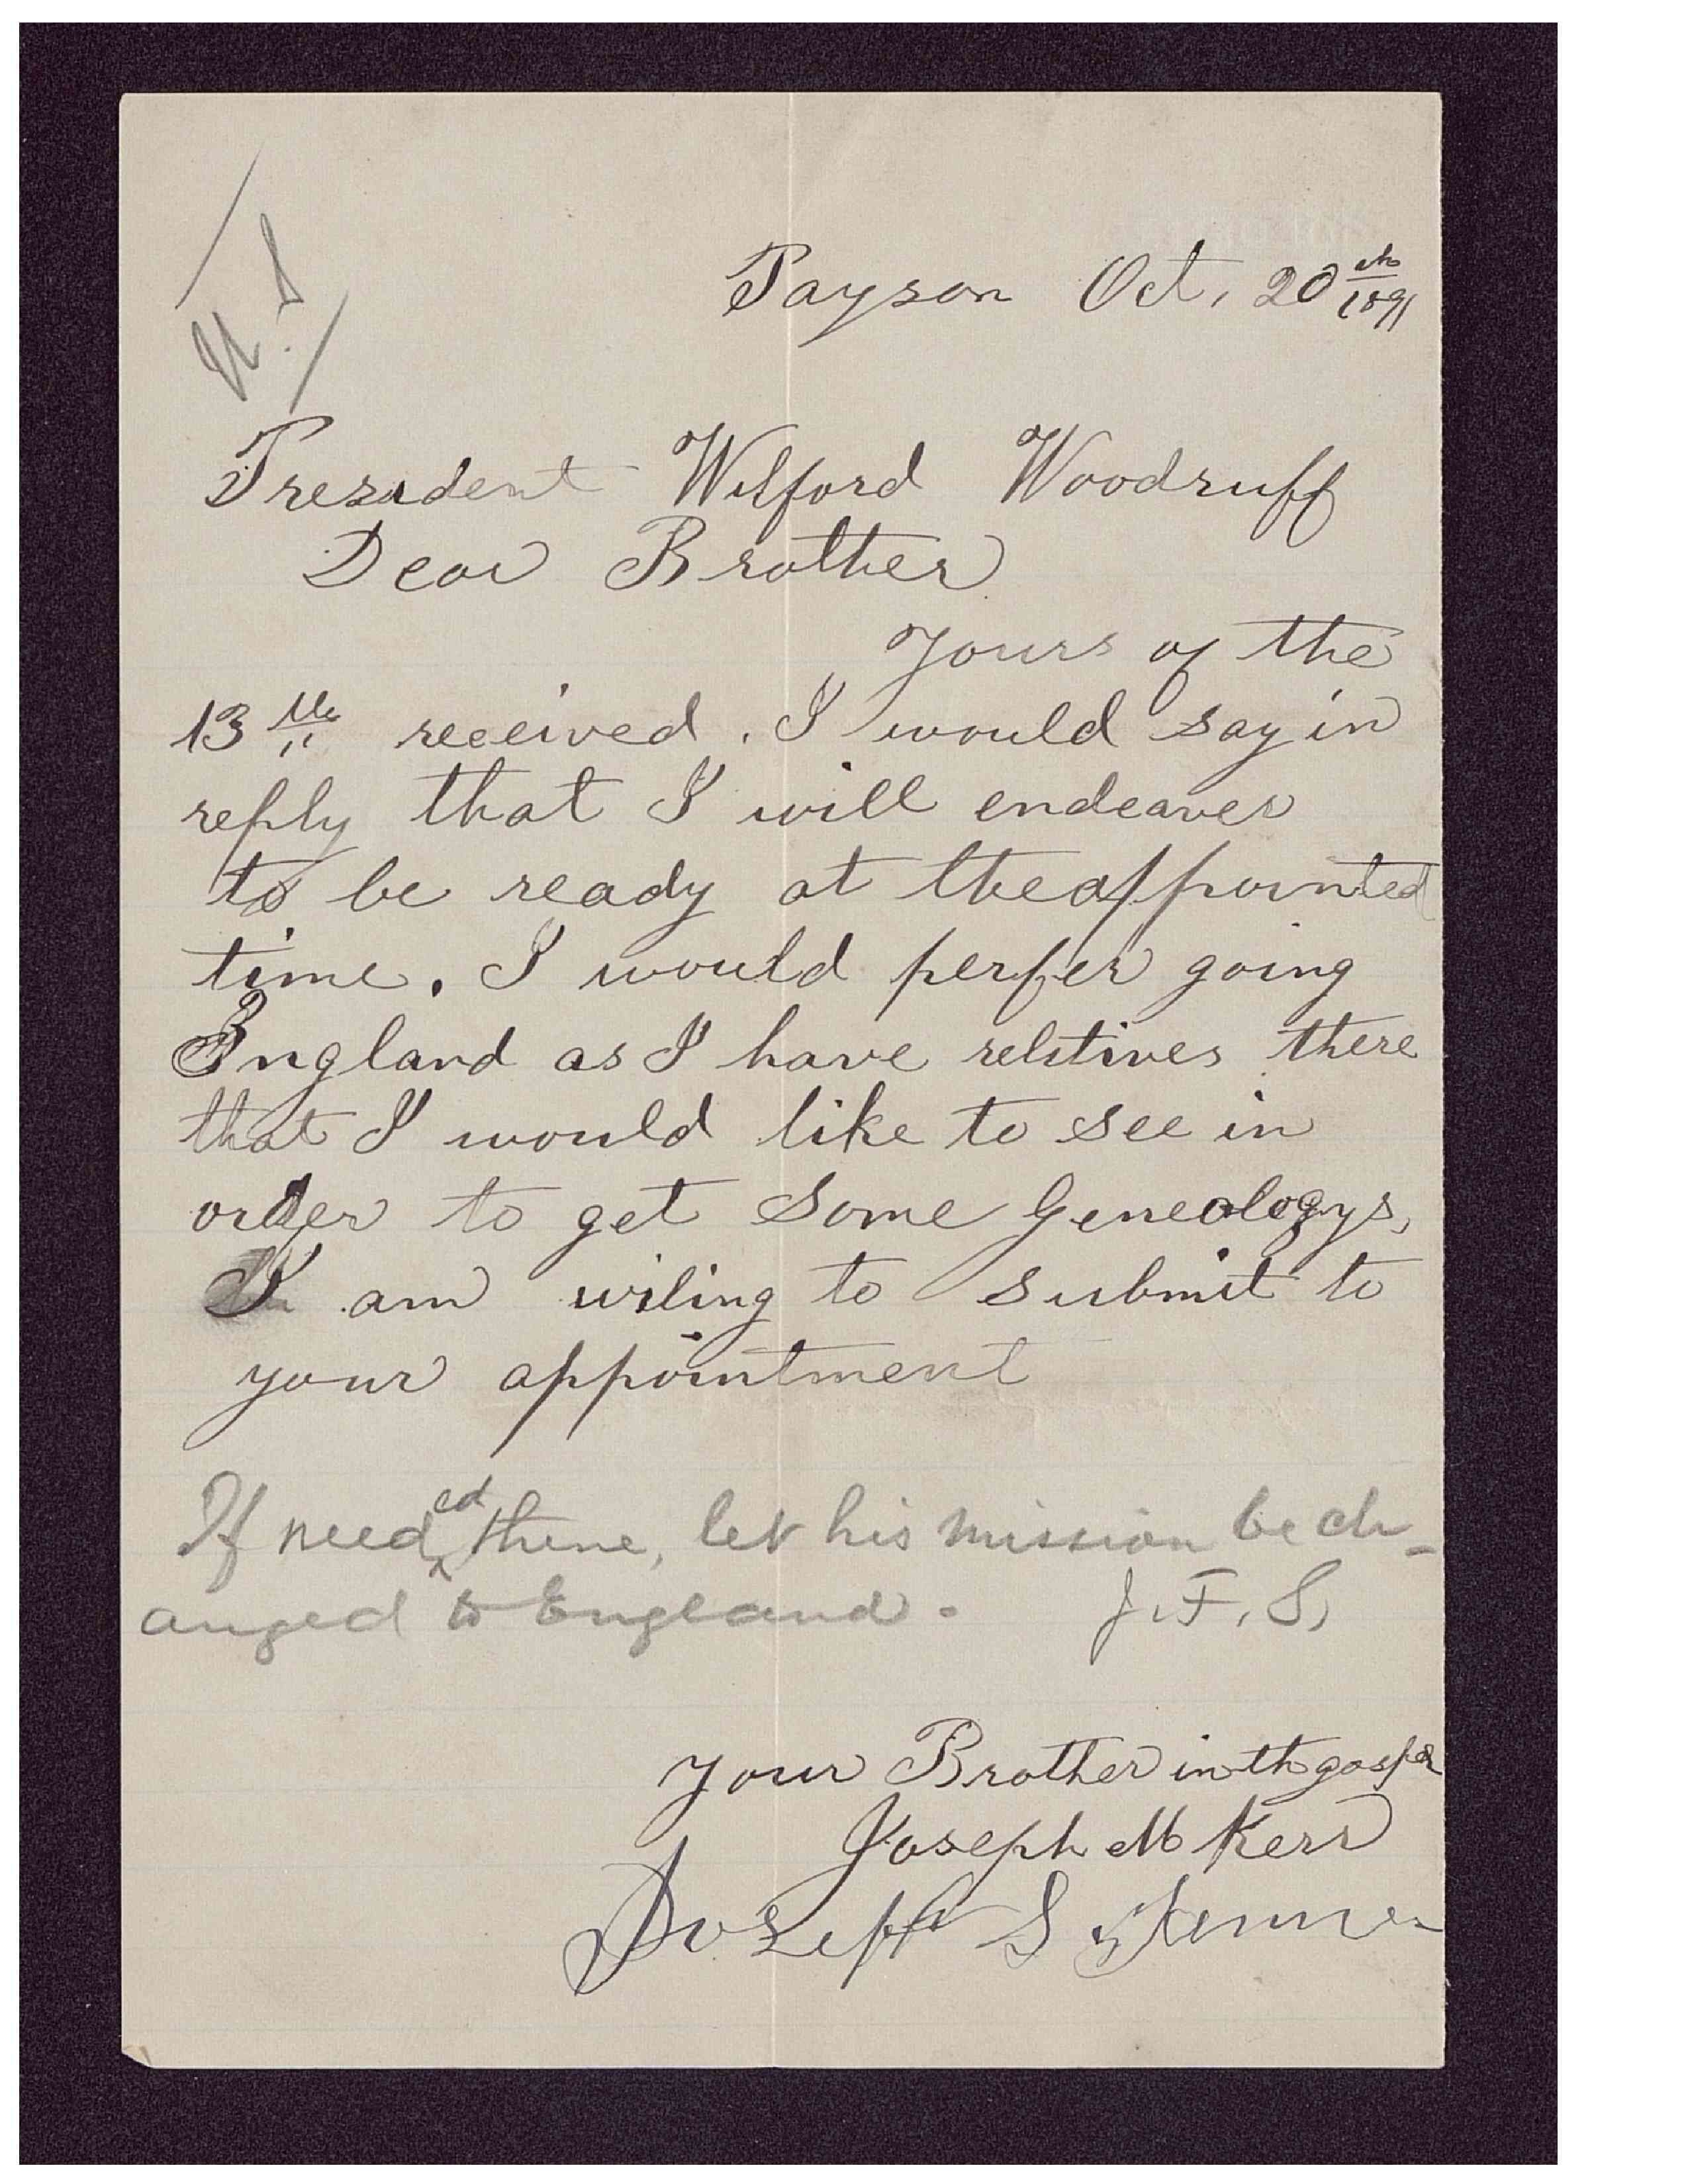 Payson Oct, 20th 1891
President Wilford Woodruff
Dear Brother
Yours of the
13th received. I would say in
reply that I will endeaver
to be ready at the appointed
time. I would perfer going
England as I have relitives there
that I would like to see in
order to get some Geneologys,
I am wiling to submit to
your appointment
If needed there, let his mission be ch-
anged to England. J. F. S,
your Brother in th gospel
Joseph M Kerr
Joseph S